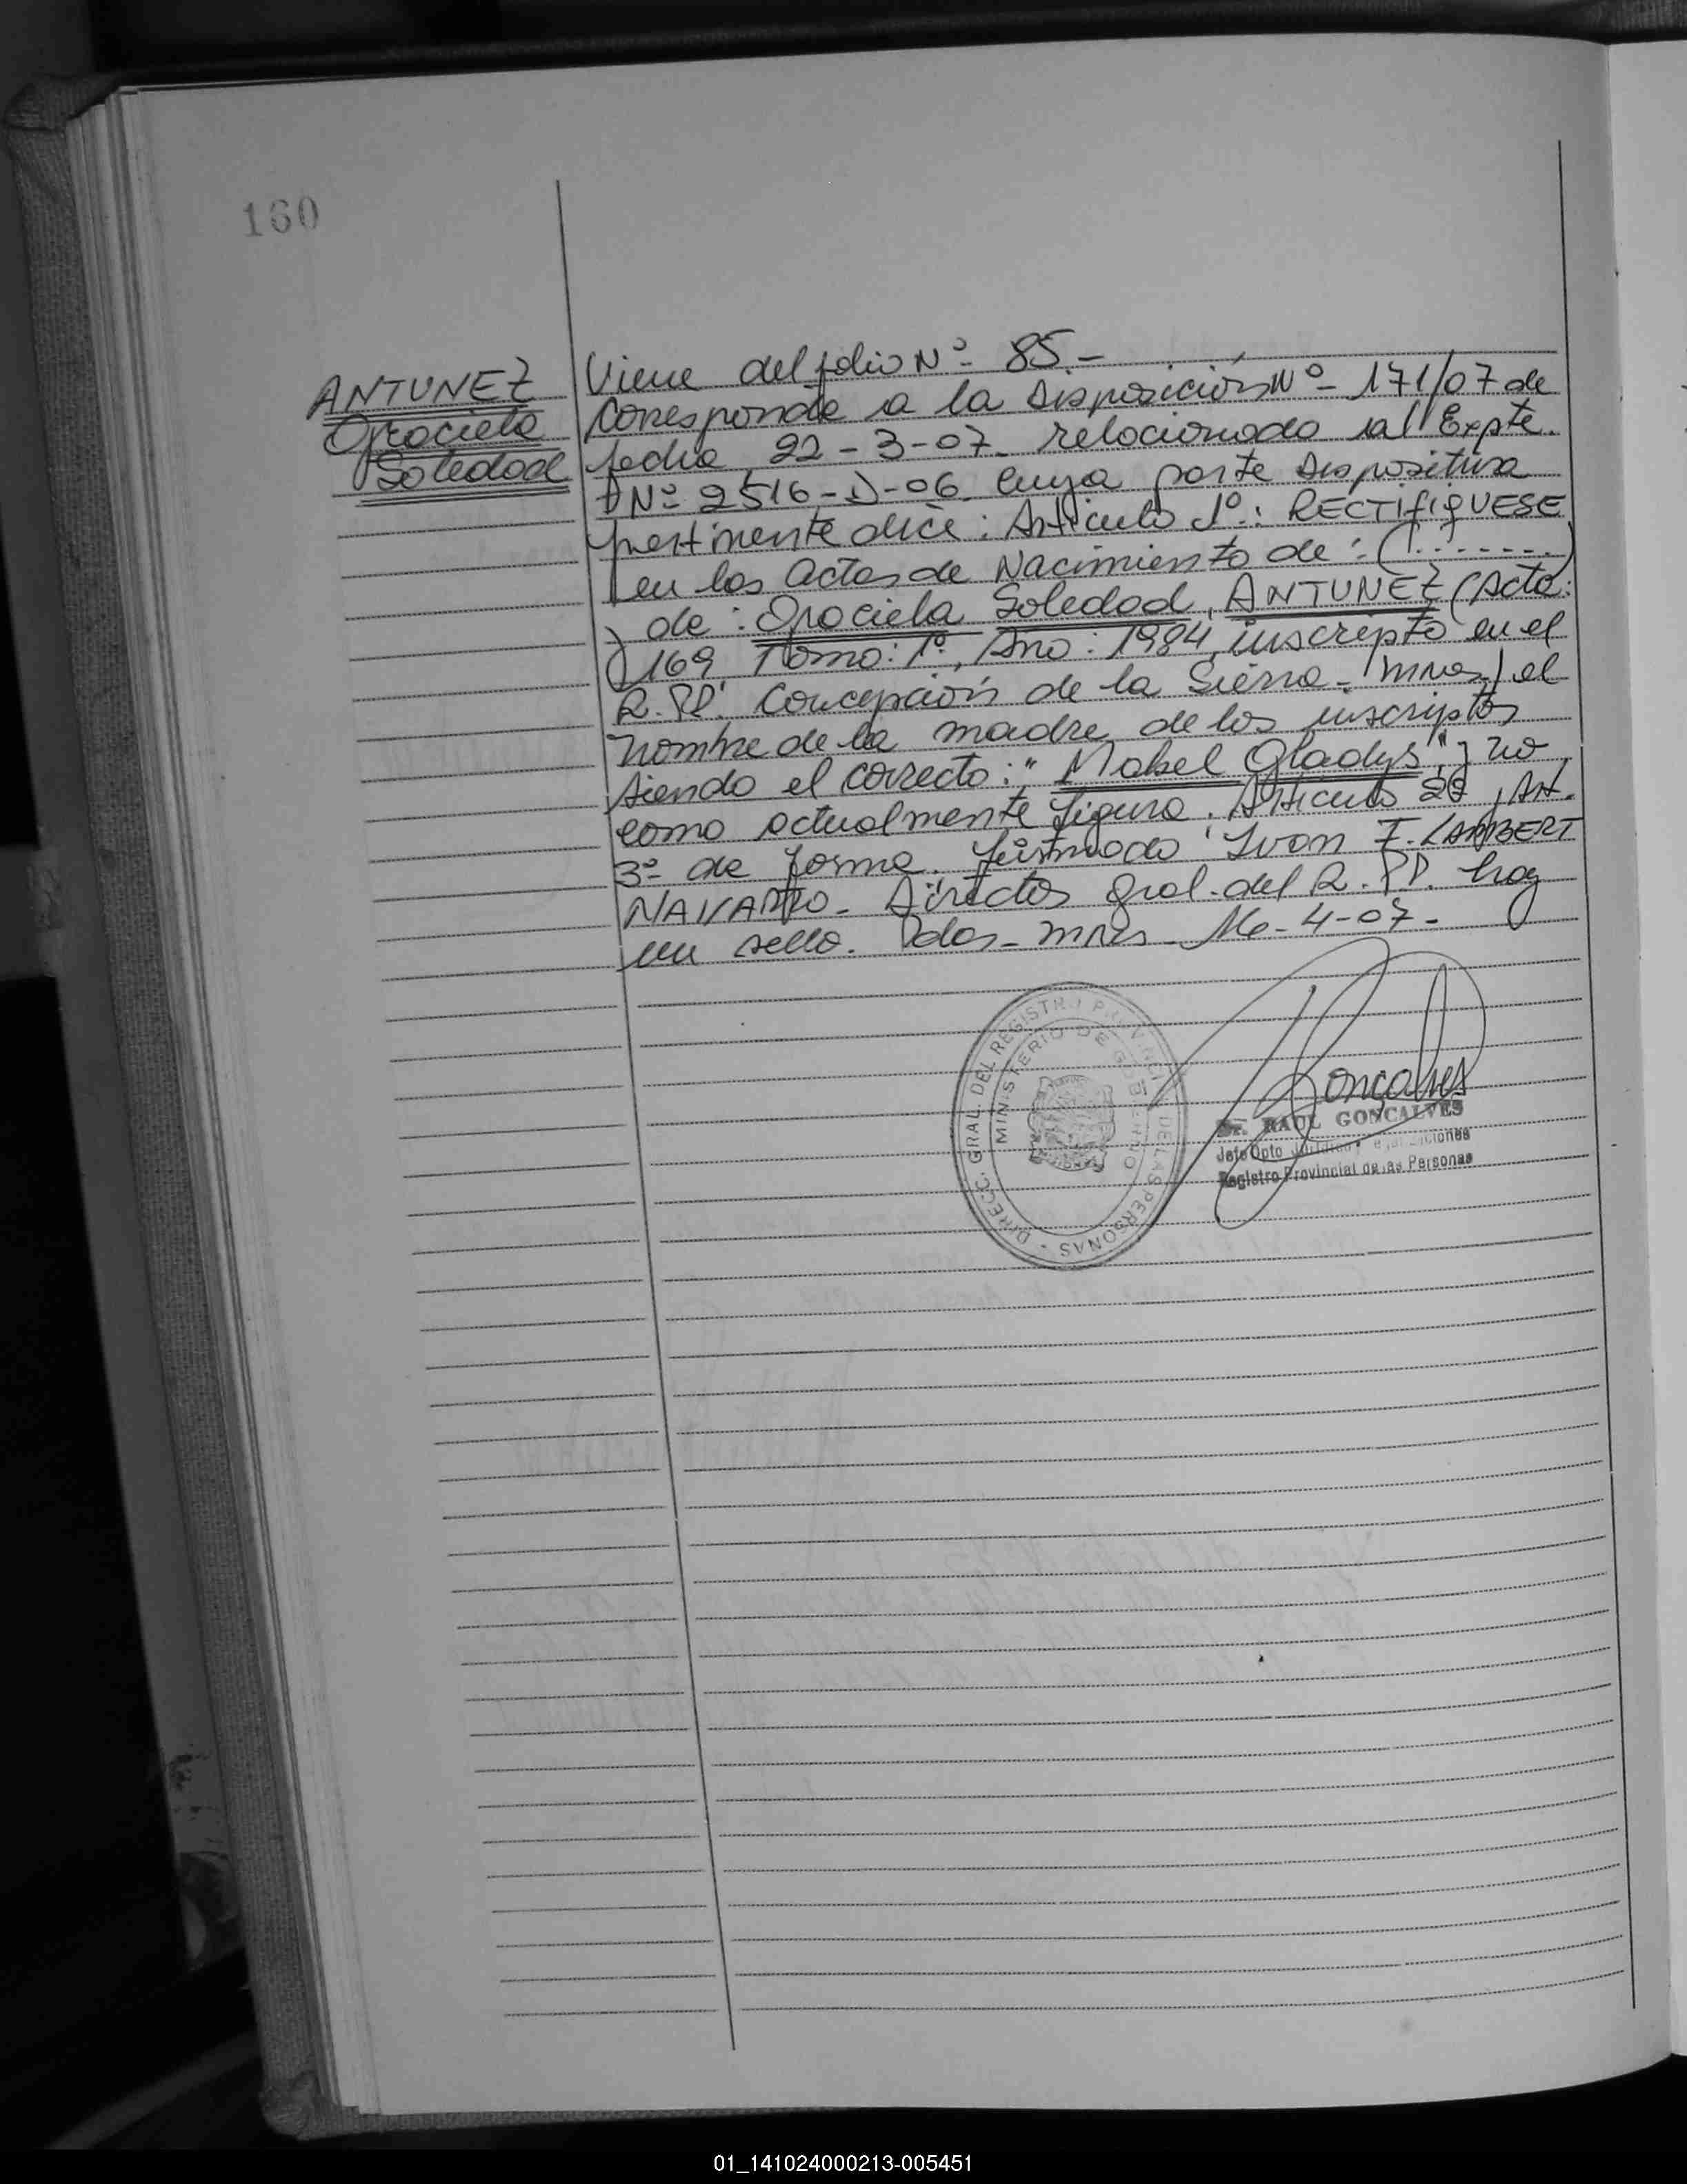 160
ANTUNEZ
Graciela
Soledad
Viene del folio Nº 85.-
Corresponde a la Disposición Nº 171/07 de
fecha 22-3-07. relacionado al Expte.
Nº 2516-D-06. Cuya parte Dispositiva
pertinente dice: Artículo 1º: RECTIFIQUESE
en los actas de Nacimiento de: (........)
de: Graciela Soledad, ANTUNEZ (Acta:
169 Tomo: 1º, Año: 1984, inscripto en el
R.PP. Concepción de la Sierra - Mnes) el
nombre de la madre de los inscriptos
siendo el correcto: "Mabel Gladys", y no
como actualmente figura. Artículo 2º, Art.
3º de forma. firmado Ivan F. LAMBERT
NAVARRO - Director Gral. del R.PP. hay
un sello. Pdas - Mnes - 4-07-
DIRECC. GRAL. DEL REGISTRO PROVINCIAL DE LAS PERSONAS
MINISTERIO DE GOBIERNO
Goncalves
Dr. RAUL GONCALVES
Jefe Dpto
Registro Provincial de las Personas
01_141024000213-005451